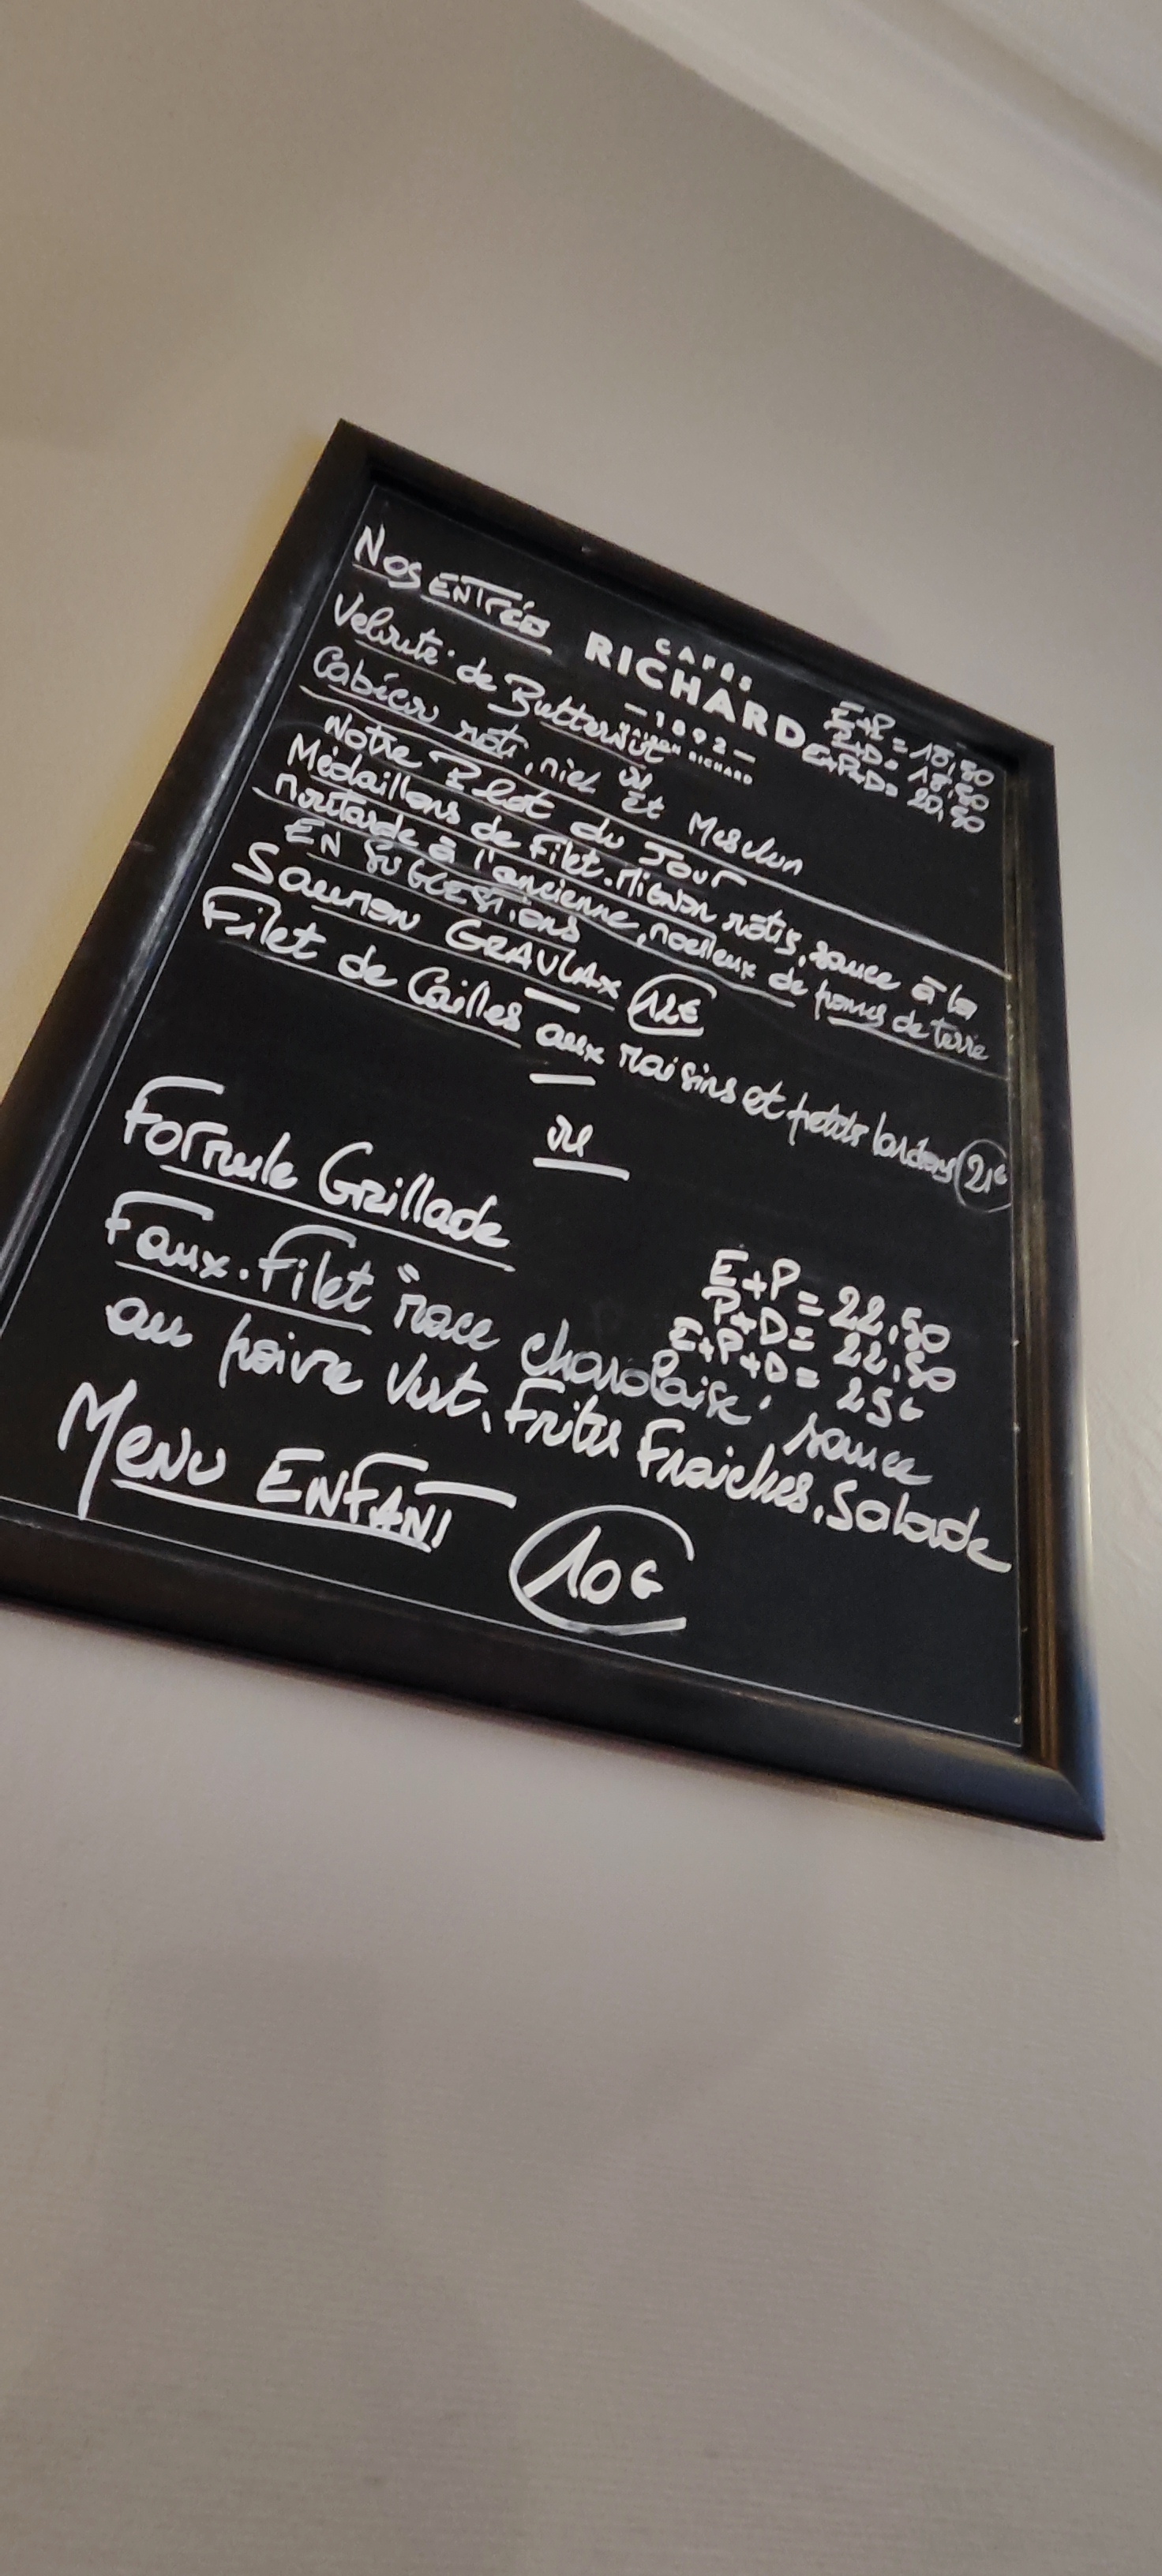 Nos ENTRÉES
CAFÉS
RICHARD
— 1892 —
MAISON RICHARD
E+P = 18,50
P+D = 18,50
E+P+D = 20,50
Velouté de Butternut
ou
Cabécou rôti, miel et Mesclun
Notre Plat du Jour
Médaillons de Filet.Mignon rôtis, sauce à la
moutarde à l'ancienne, moelleux de pomes de terre
EN SUGGESTIONS
Saumon GRAVLAX 12€
Filet de Cailles aux raisins et petits lardons 21€
ou
Formule Grillade
E+P = 22,50
P+D = 22,50
E+P+D = 25€
Faux.Filet race charolaise sauce
au poivre Vert, Frites Fraiches, Salade
MENU ENFANT 10€